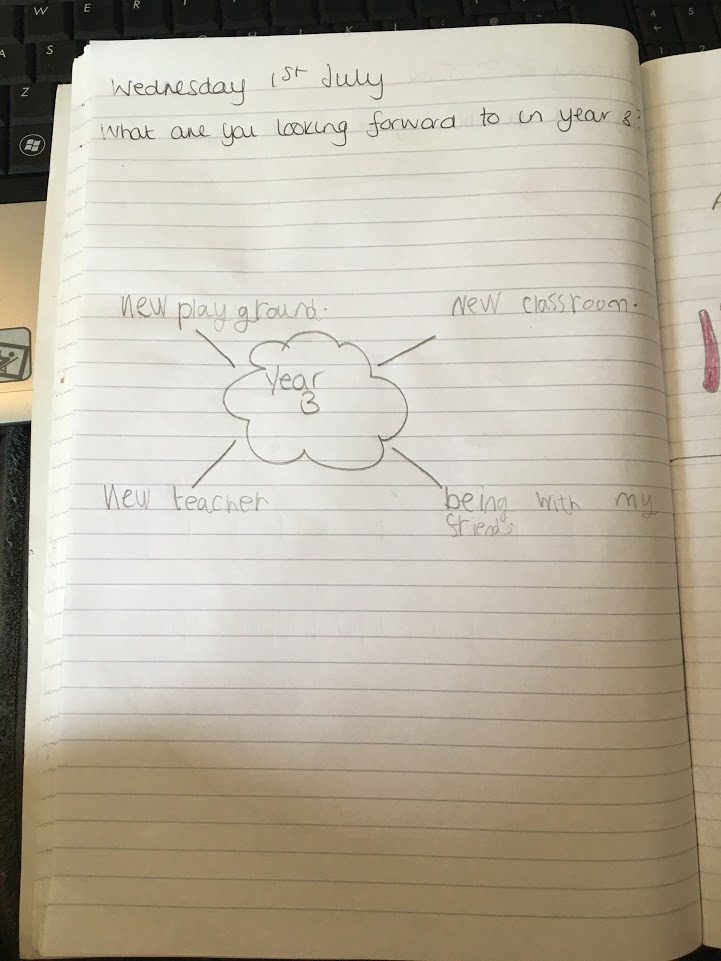 Wednesday 1st July
What are you looking forward to in year 3?
new play ground.
New classroom.
Year
3
new teacher
being with my
friends.